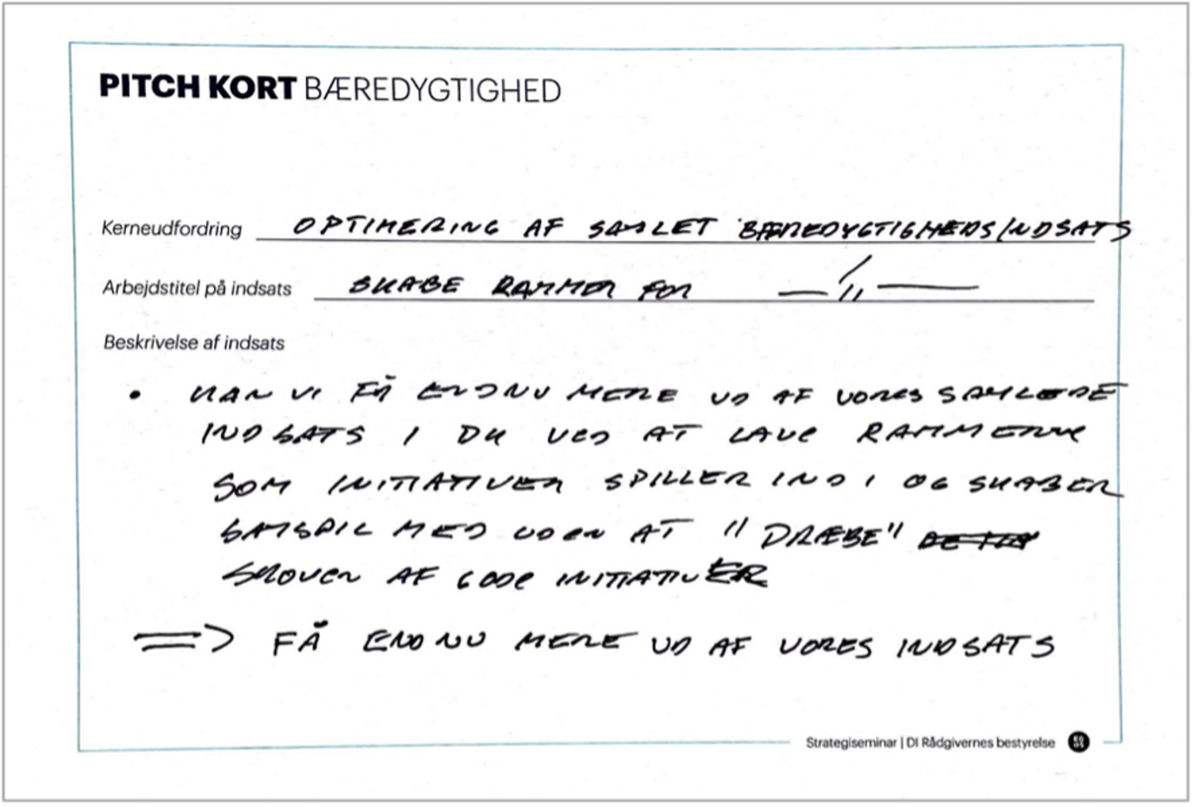 PITCH KORT BÆREDYGTIGHED
Kerneudfordring OPTIMERING AF SAMLET BÆREDYGTIGHEDSINDSATS
Arbejdstitel på indsats SKABE RAMMER FOR —//—
Beskrivelse af indsats
• KAN VI FÅ ENDNU MERE UD AF VORES SAMLEDE
INDSATS I DK VED AT LAVE RAMMERNE
SOM INITIATIVER SPILLER IND I OG SKABER
SAMSPIL MED UDEN AT "DRÆBE"
SKOVEN AF GODE INITIATIVER
=> FÅ ENDNU MERE UD AF VORES INDSATS
Strategiseminar | DI Rådgivernes bestyrelse